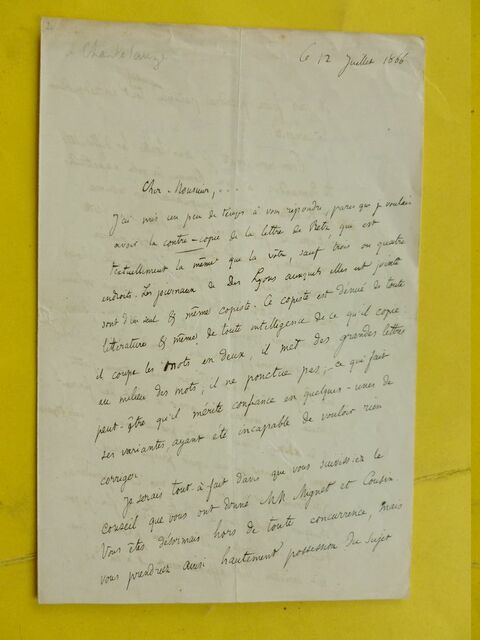 à Chantelauze
Ce 12 Juillet 1866
Cher Monsieur, . . . .
J'ai mis un peu de temps à vous répondre, parce que je voulais
avoir la contre-copie de la lettre de Retz, qui est
textuellement la même que la vôtre, sauf trois ou quatre
endroits. Les journaux de Des Lyons auxquels elles est jointe
sont d'un seul & même copiste. Ce copiste est dénué de toute
littérature & même de toute intelligence de ce qu'il copie
il coupe les mots en deux, il met des grandes lettres
au milieu des mots, il ne ponctue pas, – ce qui fait
peut-être qu'il mérite confiance en quelques-unes de
ses variantes, ayant été incapable de vouloir rien
corriger.
Je serais tout-à-fait d'avis que vous suivissiez le
conseil que vous ont donné MM. Mignet et Cousin.
Vous êtes désormais hors de toute concurrence, mais
vous prendriez ainsi hautement possession du sujet